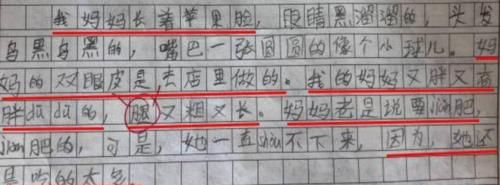 我妈妈长着苹果脸，眼睛黑溜溜的，头发
乌黑乌黑的，嘴巴一张圆圆的像个小球儿。妈
妈的双眼皮是去店里做的。我的妈妈又胖又高
胖dū dū的，腿又粗又长。妈妈老是说要jiǎn肥，
jiǎn肥的，可是，她一直shòu不下来，因为，她还
是吃的太多